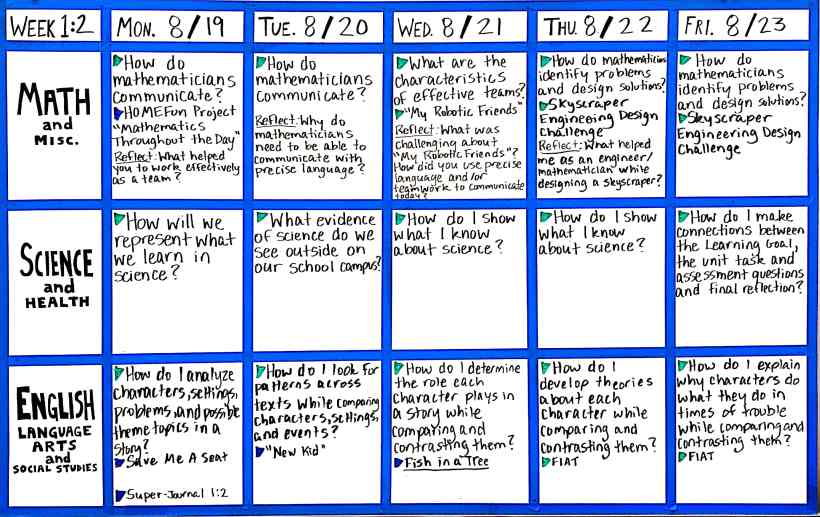 WEEK 1:2
MON. 8/19
TUE. 8/20
WED. 8/21
THU. 8/22
FRI. 8/23
MATH
and
MISC.
How do
mathematicians
communicate?
HOMEFun Project
"Mathematics
Throughout the Day"
Reflect: What helped
you to work effectively
as a team?
How do
mathematicians
communicate?
Reflect: Why do
mathematicians
need to be able to
communicate with
precise language?
What are the
characteristics
of effective teams?
"My Robotic Friends"
Reflect: What was
challenging about
"My Robotic Friends"?
How did you use precise
language and/or
teamwork to communicate
today?
How do mathematicians
identify problems
and design solutions?
Skyscraper
Engineering Design
Challenge
Reflect: What helped
me as an engineer/
mathematician while
designing a skyscraper?
How do
mathematicians
identify problems
and design solutions?
Skyscraper
Engineering Design
Challenge
SCIENCE
and
HEALTH
How will we
represent what
we learn in
science?
What evidence
of science do we
see outside on
our school campus?
How do I show
what I know
about science?
How do I show
what I know
about science?
How do I make
connections between
the Learning Goal,
the unit task and
assessment questions
and final reflection?
ENGLISH
LANGUAGE
ARTS
and
SOCIAL STUDIES
How do I analyze
characters, settings,
problems, and possible
theme topics in a
story?
Save Me A Seat
Super-Journal 1:2
How do I look for
patterns across
texts while comparing
characters, settings,
and events?
"New Kid"
How do I determine
the role each
character plays in
a story while
comparing and
contrasting them?
Fish in a Tree
How do I
develop theories
about each
character while
comparing and
contrasting them?
FIAT
How do I explain
why characters do
what they do in
times of trouble
while comparing and
contrasting them?
FIAT